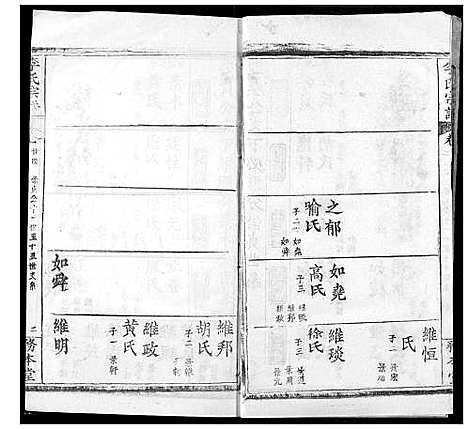 李氏宗譜
卷
之郁
喻氏
子二
如堯
如舜
如堯
高氏
子三
維邦
維政
維恒
氏
子二
維琰
徐氏
子三
景道
景周
景元
務本堂
維邦
胡氏
子二
維政
黃氏
子一
景軒
如舜
維明
李氏宗
世至十五世文系
二
務本堂